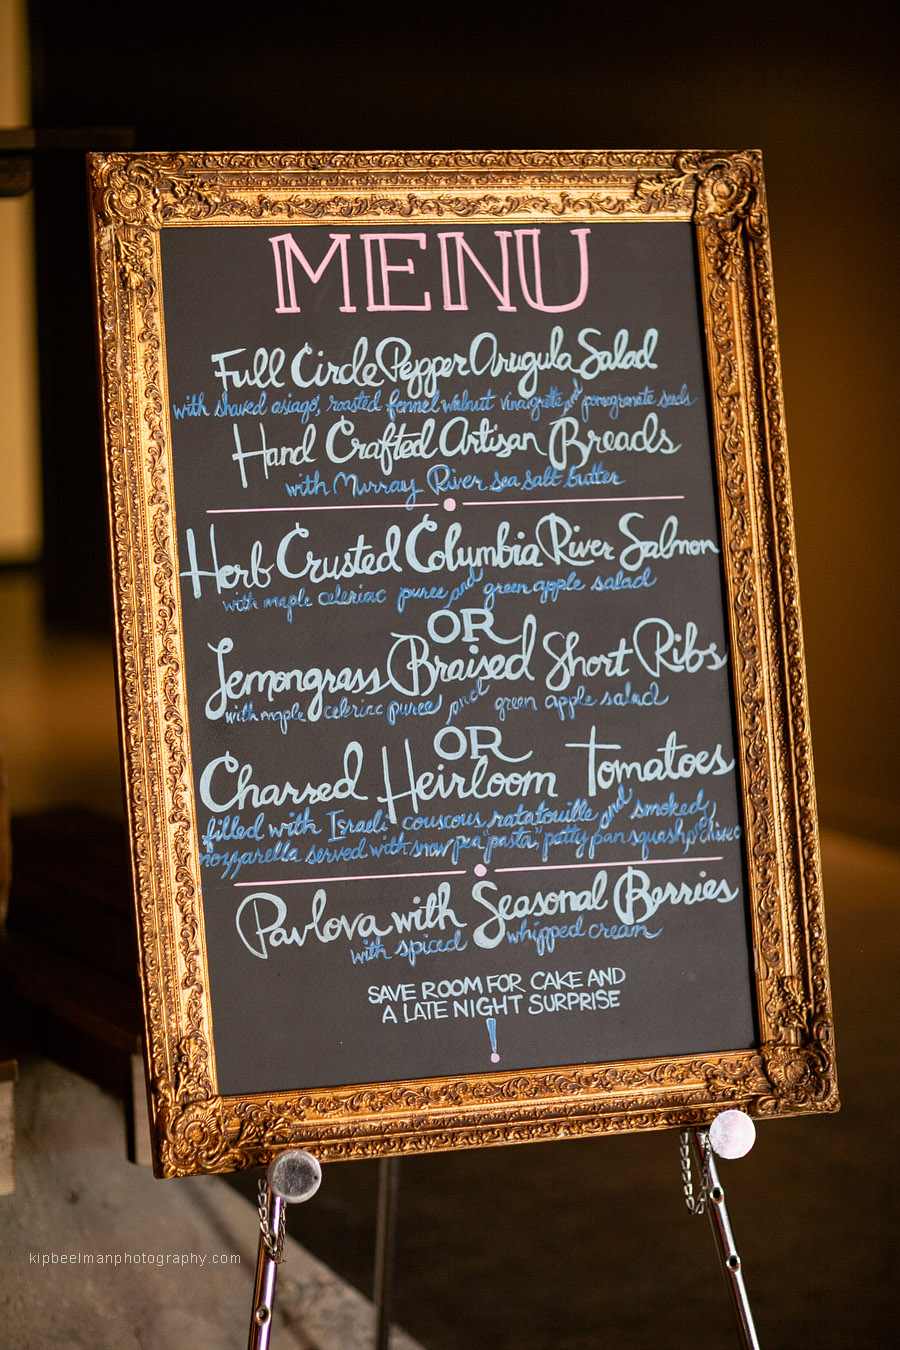 MENU
Full Circle Pepper Arugula Salad
with shaved asiago, roasted fennel walnut vinaigrette and pomegranate seeds
Hand Crafted Artisan Breads
with Murray River sea salt butter
Herb Crusted Columbia River Salmon
with maple celeriac puree and green apple salad
OR
Lemongrass Braised Short Ribs
with maple celeriac puree and green apple salad
OR
Charred Heirloom Tomatoes
filled with Israeli couscous ratatouille and smoked
mozzarella served with snow pea "pasta", patty pan squash,
Pavlova with Seasonal Berries
with spiced whipped cream
SAVE ROOM FOR CAKE AND
A LATE NIGHT SURPRISE
!
kipbeelmanphotography.com